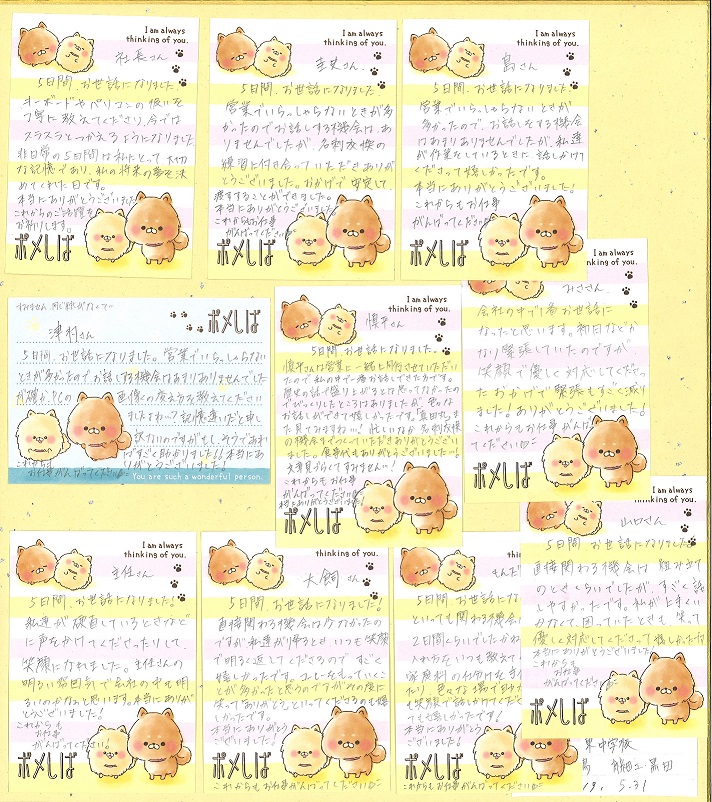 I am always
thinking of you.
社長さん
5日間、お世話になりました。
キーボードやパソコンの扱いを
丁寧に教えてくださり、今では
スラスラとつかえるようになりました
非日常の5日間は私にとって大切
な記憶であり、私の将来の夢を決
めてくれた日です。
本当にありがとうございました
これからのご活躍を
お祈りします。
ポメしば
I am always
thinking of you.
圭史さん
5日間お世話になりました。
営業でいらっしゃらないときが多
かったのでお話しする機会はあ
りませんでしたが、名刺交換の
練習に付き合っていただきありが
とうございました。おかげで安定して
渡することができました。
本当にありがとうございました
これからもお仕事
がんばってください
ポメしば
I am always
thinking of you.
島さん
5日間お世話になりました
営業でいらっしゃらないときが
多かったので、お話しをする機会
はあまりありませんでしたが、私達
が作業をしているときに話しかけて
くださって嬉しかったです。
本当にありがとうございました!
これからもお仕事
がんばってください!
ポメしば
ポメしば
津村さん
5日間、お世話になりました。営業でいらっしゃらない
ときが多かったのでお話しする機会はあまりありませんでした
が確か、PCの画像の変え方を教えてください
ましたよね…?記憶違いだと申し
訳ないのですがもしそうであれ
ばすごく助かりました!!本当にあり
がとうございました!
これからも
お仕事がんばってください
You are such a wonderful person.
I am always
thinking of you.
慎平さん
5日間お世話になりました。
慎平さんは営業に一緒に同行させていただい
たので私の中で一番お話しできた方です。
歴史の話で盛り上がるとは思ってなかった
のでびっくりしたところはありましたが、色んな
お話しができて嬉しかったです。真田丸、ま
た見てみますね…!忙しいなか名刺交換
の機会までつくっていただきありがとうございまし
た。食事代もありがとうございましたー!
文章見づらくてすみません…!
これからもお仕事
がんばってください!
本当にありがとうございました
ポメしば
I am always
thinking of you.
みささん
会社の中で1番お世話に
なったと思います。初日などか
なり緊張していたのですが、
笑顔で優しく対応してくださっ
たおかげで緊張もすごく減り
ました!ありがとうございました!
これからもお仕事がんばっ
てください
ポメしば
I am always
thinking of you.
主任さん
5日間、お世話になりました!
私達が硬直しているときなど
に声をかけてくださったりして、
笑顔になれました。主任さんの
明るい雰囲気で会社の中も明
るいのかなと思います。本当にありが
とうございました!
これからも
お仕事
がんばってください!
ポメしば
thinking of you.
犬飼さん
5日間、お世話になりました!
直接関わる機会は少なかったの
ですが私達が帰るときいつも笑顔
で明るく返してくださるのですごく
嬉しかったです。
ことが多かったと思うのですがその度に
笑ってありがとうといってくださるのも嬉
しかったです。
本当にありがとう
ございました!
これからもお仕事がんばってください
ポメしば
thinking of you.
5日間、お世話になりました
といっても関わる機会
2日間くらいでしたが
入れ方をいつも教えて
ございました!
これからもお仕事がんばってください
ポメしば
山口さん
5日間、お世話になりました
直接関わる機会は組み立て
のときくらいでしたが、すごく話
しやすかったです。私が上手くい
かなくて、困っていたときも、笑って
優しく対応してくださって嬉しかったな
本当にありがとうございました
これからも
お仕事
がんばってください
ポメしば
東中学校
島
黒田
19. 5.31